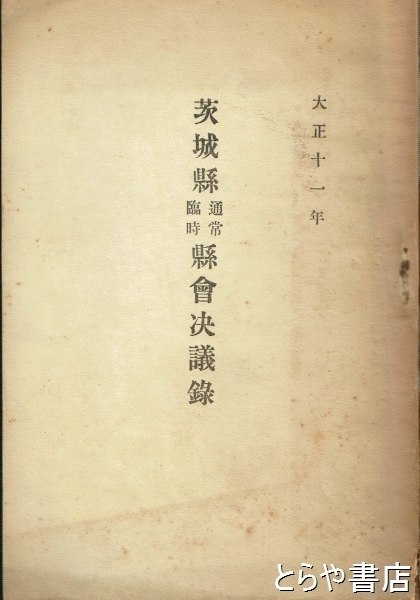 大正十一年
茨城縣通常臨時縣會決議錄
とらや書店